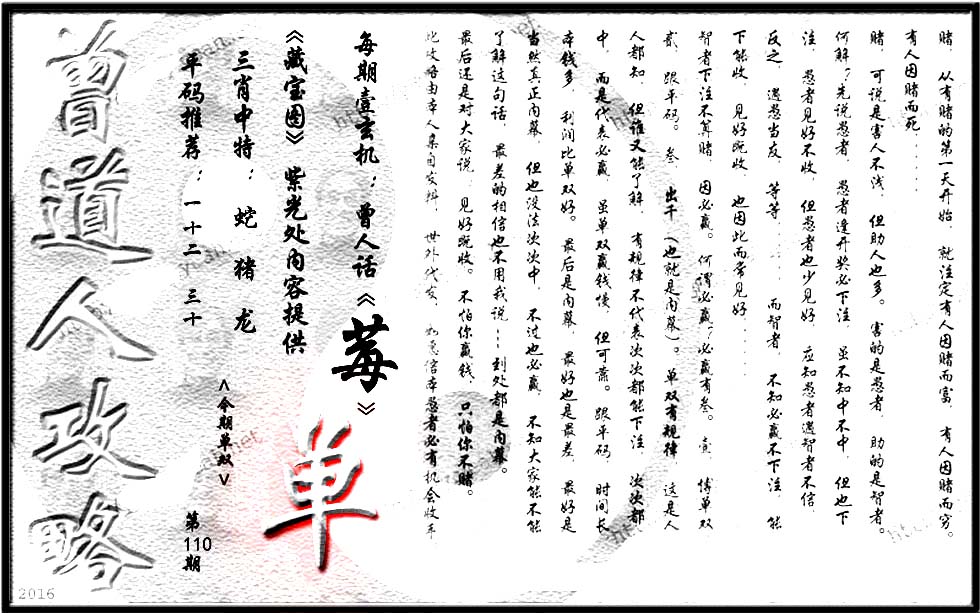 赌,从有赌的第一天开始,就注定有人因赌而富,有人因赌而穷。
有人因赌而死......
赌,可说是害人不浅,但助人也多。害的是愚者,助的是智者。
何解?先说愚者,愚者逢开奖必下注,虽不知中不中,但也下
注,愚者见好不收,但愚者也少见好,应知愚者遇智者不信,
反之,遇愚当友,等等......而智者,不知必赢不下注,能
下能收,见好既收,也因此而常见好......
智者下注不算赌,因必赢。何谓必赢?必赢有叁。壹,博单双
贰,跟平码。叁,出千(也就是内幕)。单双有规律,这是人
人都知,但谁又能了解,有规律不代表次次都能下注,次次都
中,而是代表必赢,虽单双赢钱慢,但可靠。跟平码,时间长
本钱多,利润比单双好。最后是内幕,最好也是最差,最好是
当然真正内幕,但也没法次次中,不过也必赢,不知大家能不能
了解这句话,最差的相信也不用我说...到处都是内幕。
最后还是对大家说,见好既收。不怕你赢钱,只怕你不赌。
此攻略由本人亲自发料,世外代发,
每期壹玄机:曾人话《莓》
《藏宝图》紫光处内容提供
三肖中特:蛇 猪 龙
平码推荐:一十二 三十
<今期单双>
单
第110期
曾道人攻略
2016